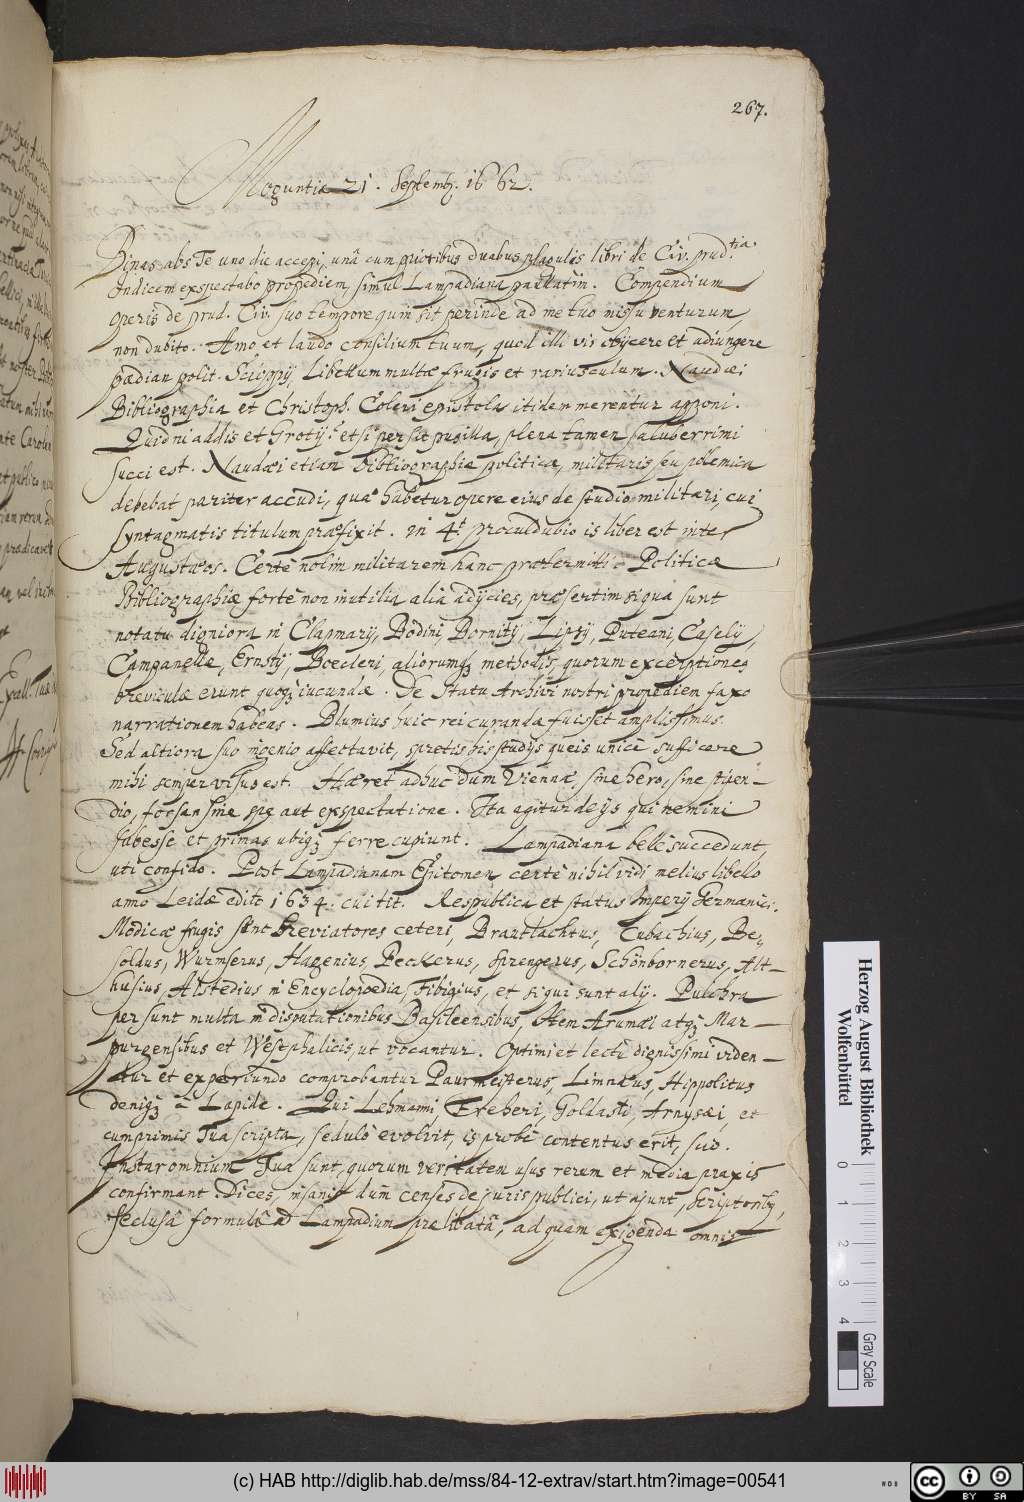 267.
Moguntiæ 21. Septembr. 1662.
Binas abs Te uno die accepi, unâ cum prioribus duabus plagulis libri de Civ. prud.tia.
Indicem exspectabo propediem, simul Lampadiana paullatim. Compendium
operis de prud. Civ. suo tempore quin sit perinde ad me tuo missu venturum,
non dubito. Amo et laudo consilium tuum, quod illi vis obijcere et adiungere
pædian polit. Scioppij, Libellum multæ frugis et rariusculum. Naudæi
Bibliographia et Christoph. Coleri epistola itidem merentur apponi.
Quidni addis et Grotij? etsi persit pusilla, plena tamen saluberrimi
succi est. Naudæi etiam bibliographia politica, militaris seu polemica
debebat pariter accudi, quæ habetur opere eius de studio militari, cui
Syntagmatis titulum præfixit. in 4.t proculdubio is liber est inter
Augustæos. Certè nolim militarem hanc prætermitti. Politicæ
Bibliographiæ fortè non inutilia alia adijcies, præsertim siqua sunt
notatu digniora in Clapmarij, Bodini, Bornitij, Lipsij, Puteani, Caselij,
Campanellæ, Ernstij, Boecleri, aliorumq; methodis, quorum excerptiones
breviculæ erunt quoq; iucundæ. De statu Archivi nostri propediem faxo
narrationem habeas. Blumius huic rei curandæ fuisset amplissimus.
Sed altiora suo ingenio affectavit, spretis his studijs queis unicè sufficere
mihi semper visus est. Hæret adhuc dum Viennæ, sine hero, sine stipen-
dio, forsan sine spe aut exspectatione. Ita agitur de ijs qui nemini
subesse et primas ubiq; ferre cupiunt. Lampadiana bellè succedunt,
uti confido. Post Lampadianam Epitomen certè nihil vidi melius libello
anno Leidæ edito 1634. cui tit. Respublica et status Imperij Germanici.
Modicæ frugis sunt breviatores ceteri, Brautlachtus, Cubachius, Be-
soldus, Wurmserus, Hagenius, Peckerus, Sprengerus, Schönbornerus, Alt-
husius, Alstedius in Encyclopædia, Fibigius, et siqui sunt alij. Pulchra
persunt multa in disputationibus Basileensibus, Item Arumæi atq; Mar-
purgensibus et Westphalicis, ut vocantur. Optimi et lectu dignissimi viden-
tur et experiundo comprobantur Paurmeisterus, Limnæus, Hippolitus
deniq; à Lapide. Qui Lehmanni, Freheri, Goldasti, Arnysæi, et
cumprimis Tua scripta, sedulò evolvit, is probè contentus erit, scio.
Instar omnium Tua sunt, quorum veritatem usus rerum et media praxis
confirmant. Dices, insanis dum censes de juris publici, ut ajunt, scriptorib;,
seclusâ formulâ ad Lampadium prælibatâ, ad quam exigenda omnis
Herzog August Bibliothek
Wolfenbüttel
0 1 2 3 4
Gray Scale
(c) HAB http://diglib.hab.de/mss/84-12-extrav/start.htm?image=00541
cc BY SA